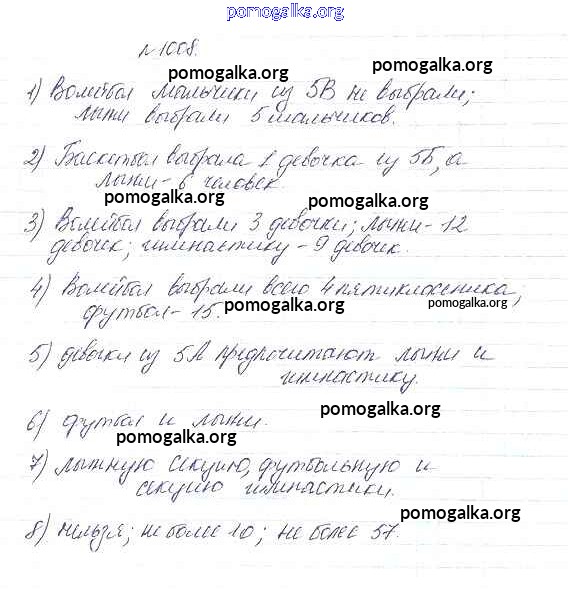 pomogalka.org
№1008.
pomogalka.org pomogalka.org
1) Волейбол мальчики из 5В не выбрали;
лыжи выбрали 5 мальчиков.
pomogalka.org
2) Баскетбол выбрала 1 девочка из 5Б, а
лыжи - 6 человек.
pomogalka.org pomogalka.org
3) Волейбол выбрали 3 девочки; лыжи - 12
девочек; гимнастику - 9 девочек.
4) Волейбол выбрали всего 4 пятиклассника;
футбол - 15.
pomogalka.org pomogalka.org
5) девочки из 5А предпочитают лыжи и
гимнастику.
pomogalka.org
6) футбол и лыжи.
pomogalka.org
7) лыжную секцию, футбольную и
секцию гимнастики.
pomogalka.org
8) нельзя; не более 10; не более 57.